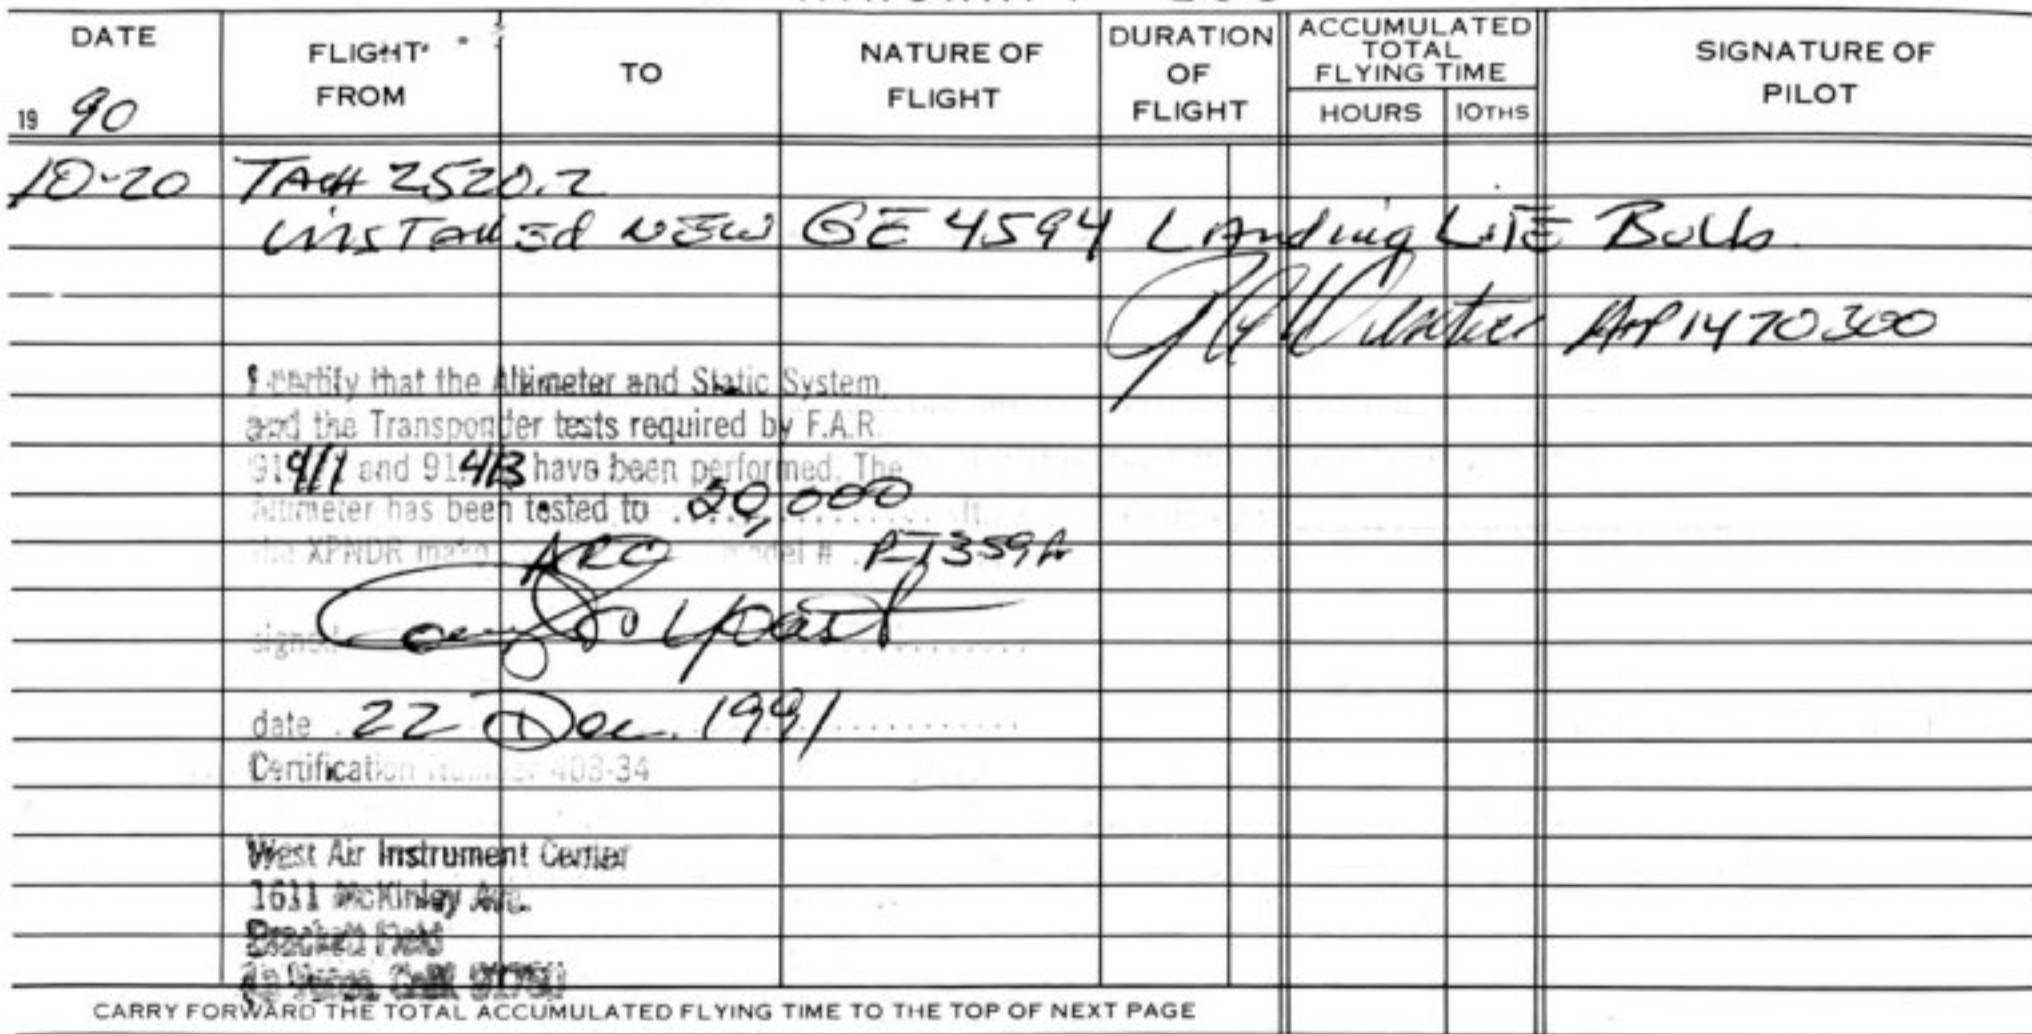 DATE
FLIGHT
FROM
TO
NATURE OF
FLIGHT
DURATION
OF
FLIGHT
ACCUMULATED
TOTAL
FLYING TIME
HOURS
10THS
SIGNATURE OF
PILOT
19 90
10-20 TACH 2520.2
INSTALLED NEW GE 4594 Landing LITE Bulb
A&P 1470300
I certify that the Altimeter and Static System,
and the Transponder tests required by F.A.R.
91.411 and 91.413 have been performed. The
Altimeter has been tested to 20,000 ft.
the XPNDR make ARC model # RT359A
signed
date 22 Dec. 1991
Certification Number 403-34
West Air Instrument Center
1611 McKinley Ave.
Brackett Field
La Verne, Calif. 91750
CARRY FORWARD THE TOTAL ACCUMULATED FLYING TIME TO THE TOP OF NEXT PAGE